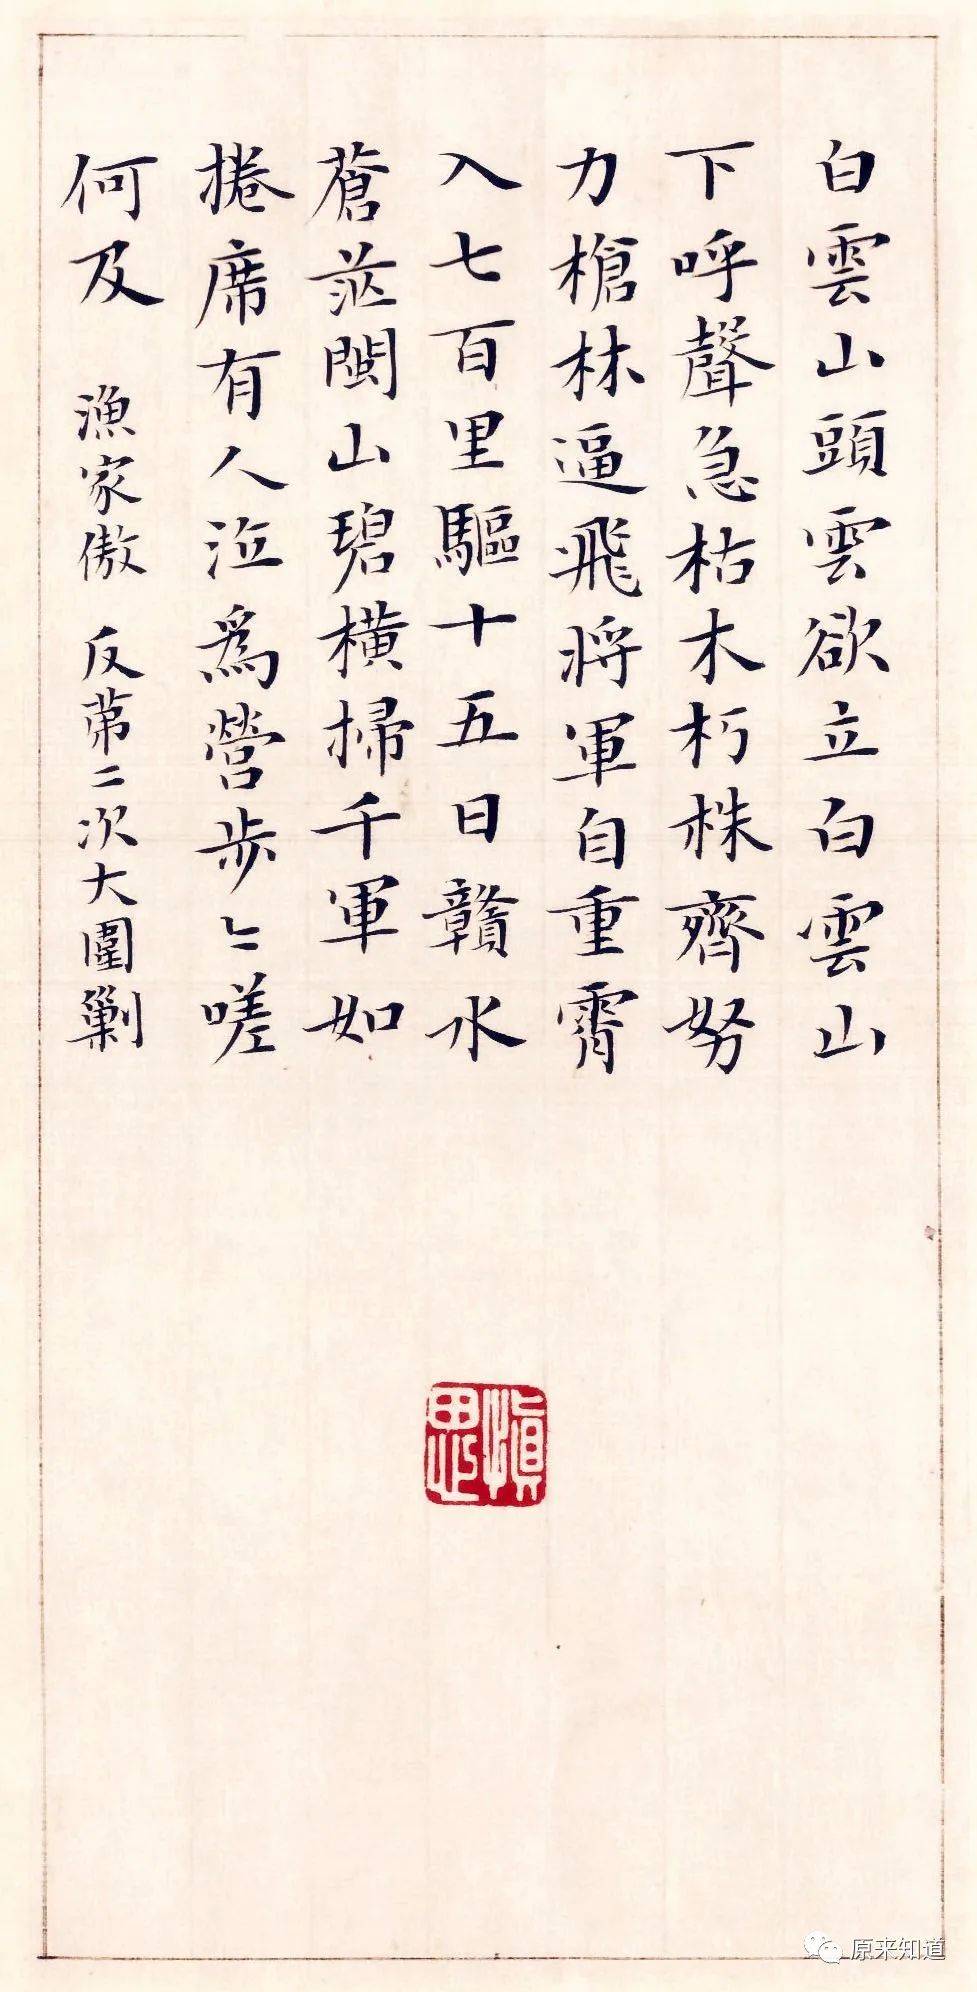 白雲山頭雲欲立白雲山
下呼聲急枯木朽株齊努
力槍林逼飛將軍自重霄
入七百里驅十五日贛水
蒼茫閩山碧橫掃千軍如
捲席有人泣爲營步〻嗟
何及 漁家傲 反第二次大圍剿
慎思
原来知道